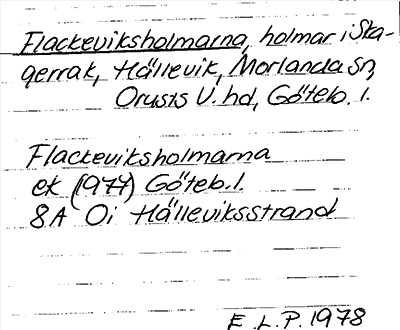 Flackeviksholmarna, holmar i Ska-
gerrak, Hällevik, Morlanda sn,
Orusts V. hd, Göteb. l.
Flackeviksholmarna
ek (1977) Göteb. l.
8A Oi Hälleviksstrand
E. L. P. 1978